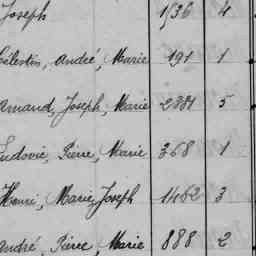 Joseph 1536 4
Célestin, André, Marie 191 1
Armand, Joseph, Marie 2881 5
Ludovic, Pierre, Marie 368 1
Henri, Marie, Joseph 1462 3
André, Pierre, Marie 888 2